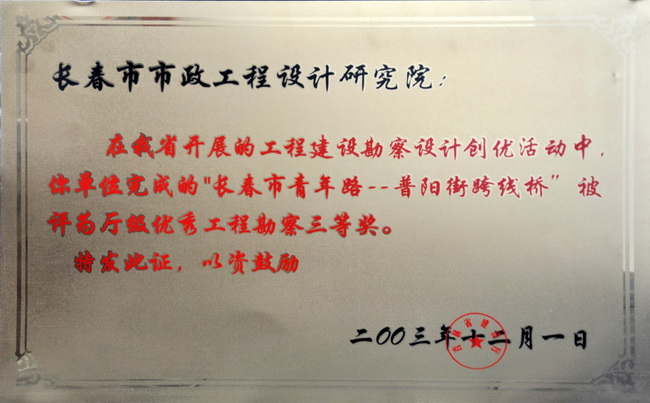 长春市市政工程设计研究院：
在我省开展的工程建设勘察设计创优活动中，
你单位完成的"长春市青年路--普阳街跨线桥"被
评为厅级优秀工程勘察三等奖。
特发此证，以资鼓励
二00三年十二月一日
吉林省建设厅